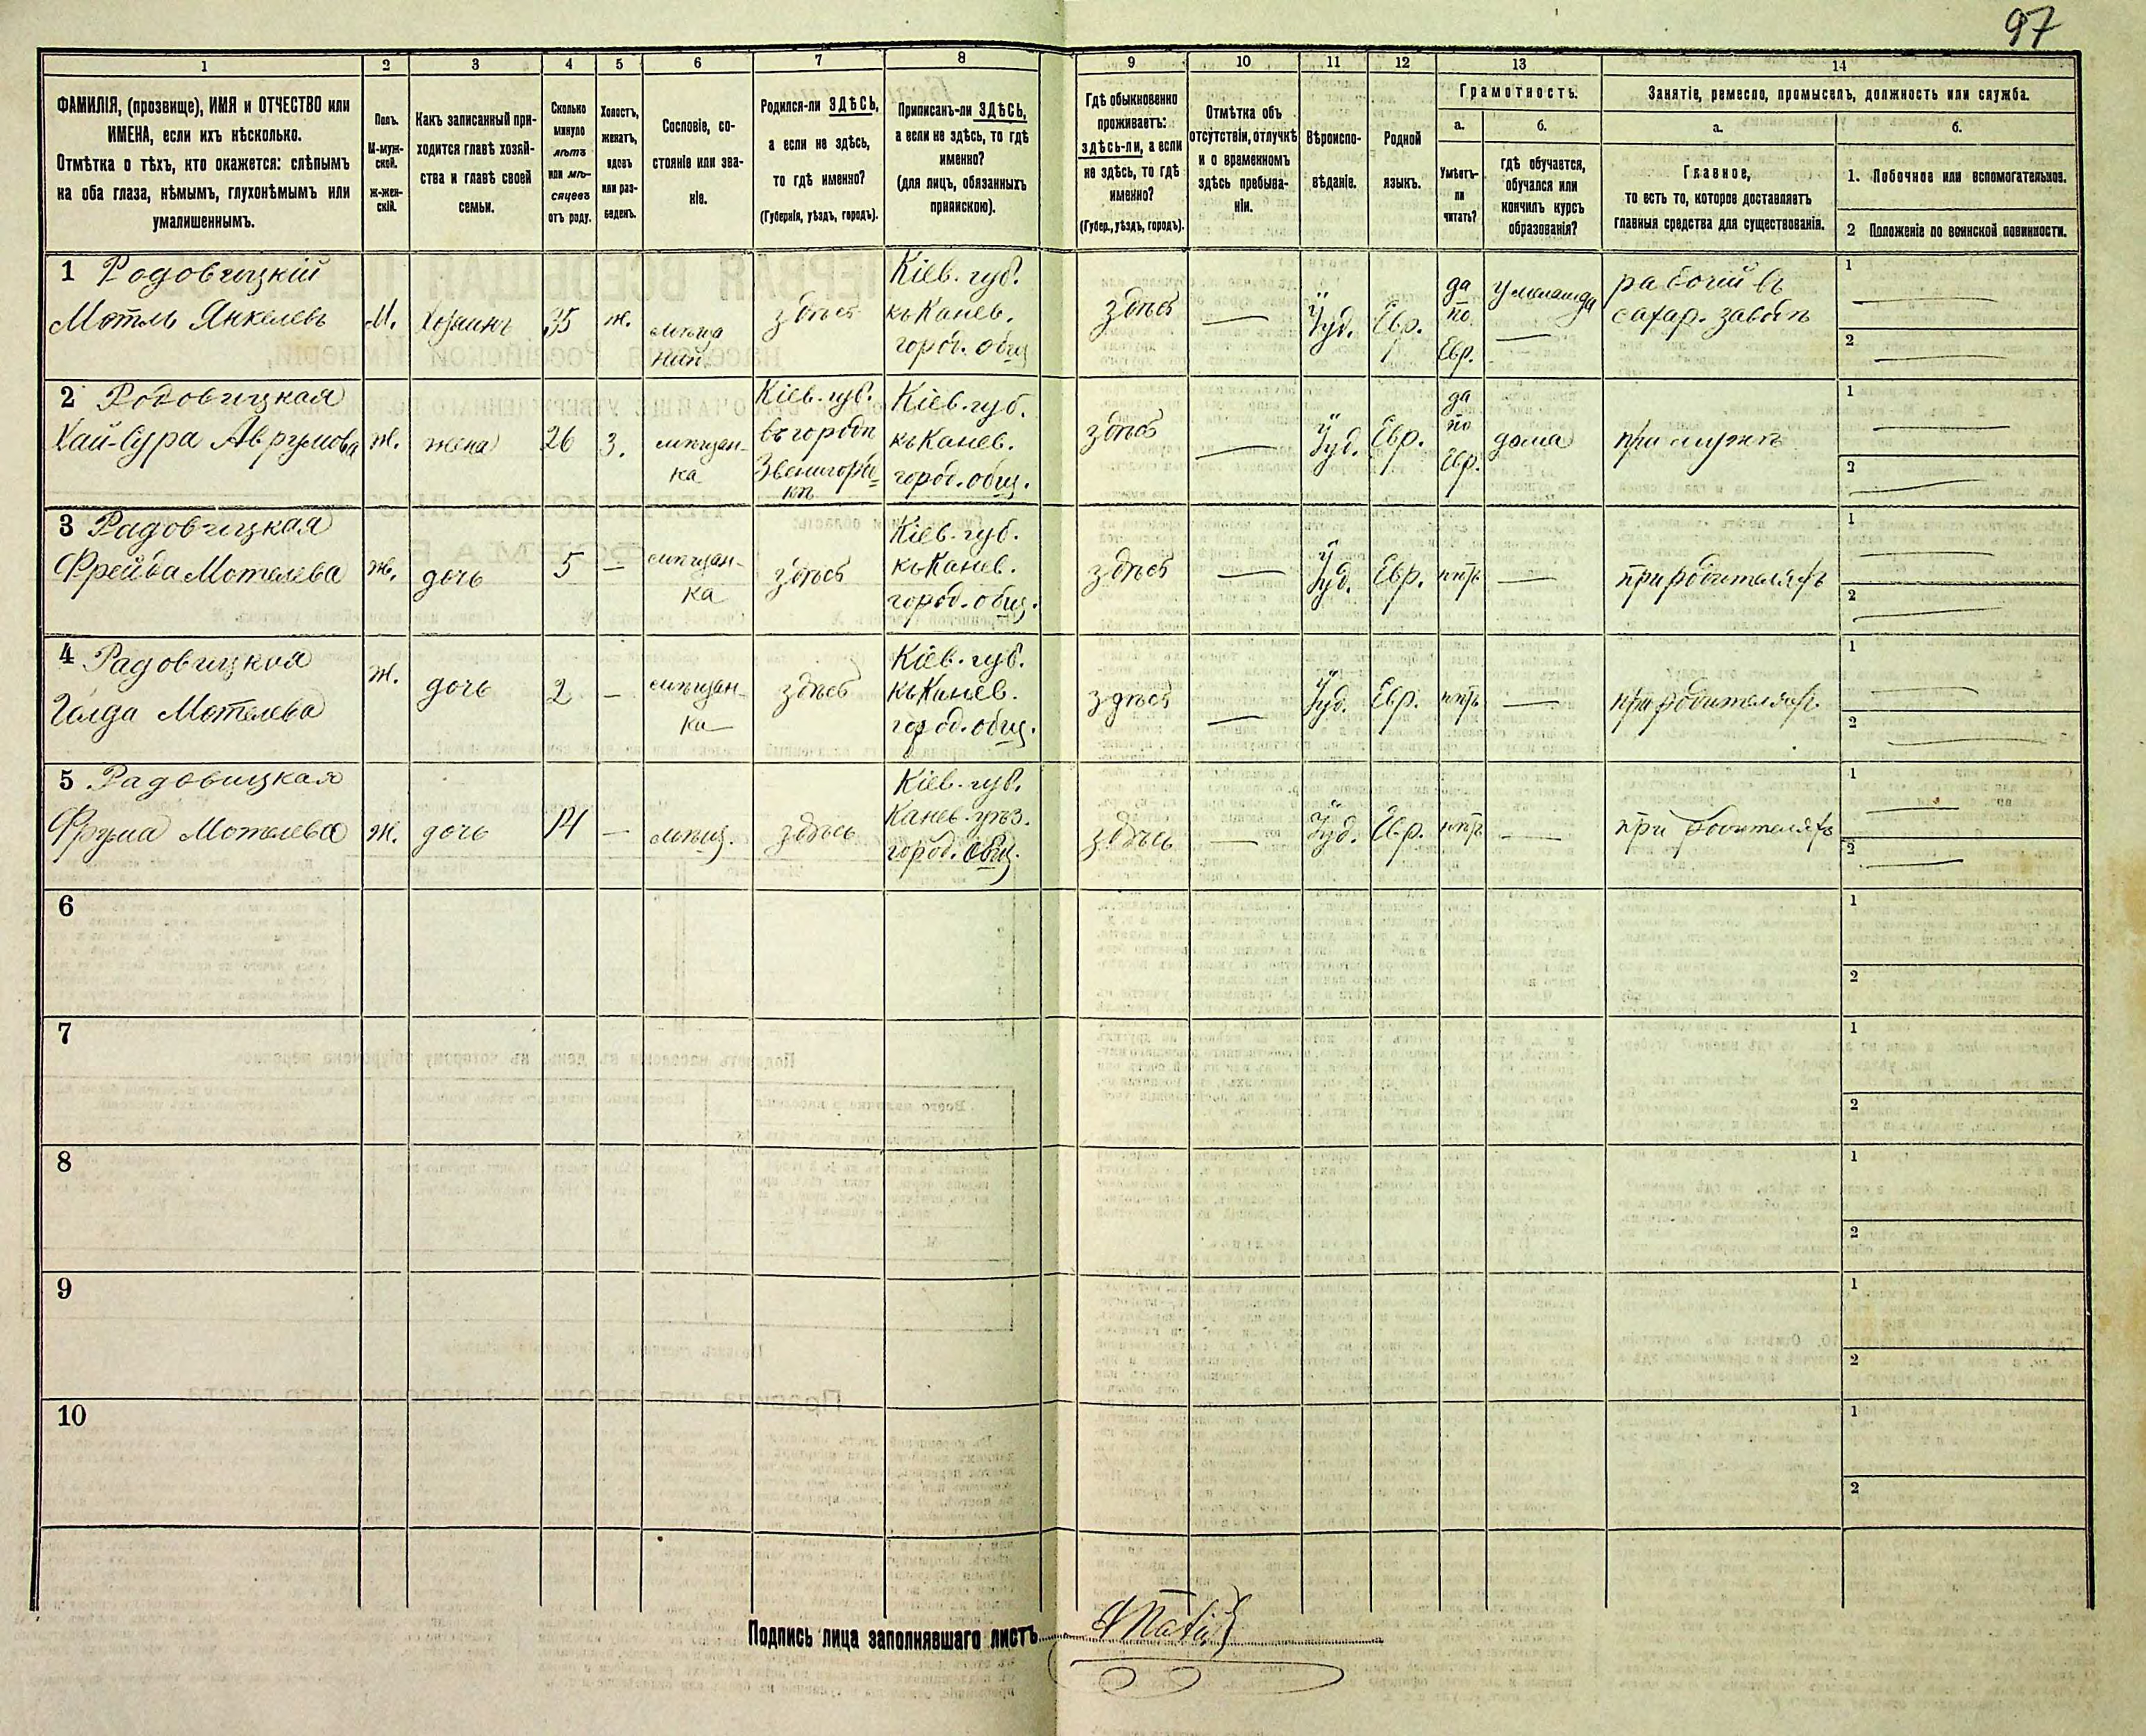 97
1
2
3
4
5
6
7
8
9
10
11
12
13
14
ФАМИЛІЯ, (прозвище), ИМЯ и ОТЧЕСТВО или
ИМЕНА, если ихъ нѣсколько.
Отмѣтка о тѣхъ, кто окажется: слѣпымъ
на оба глаза, нѣмымъ, глухонѣмымъ или
умалишеннымъ.
Полъ.
М-муж-
ской.
Ж-жен-
скій.
Какъ записанный при-
ходится главѣ хозяй-
ства и главѣ своей
семьи.
Сколько
минуло
лѣтъ
или мѣ-
сяцевъ
отъ роду.
Холостъ,
женатъ,
вдовъ
или раз-
веденъ.
Сословіе, со-
стояніе или зва-
ніе.
Родился-ли ЗДѢСЬ,
а если не здѣсь,
то гдѣ именно?
(Губернія, уѣздъ, городъ).
Приписанъ-ли ЗДѢСЬ,
а если не здѣсь, то гдѣ
именно?
(для лицъ, обязанныхъ
припискою).
Гдѣ обыкновенно
проживаетъ:
здѣсь-ли, а если
не здѣсь, то гдѣ
именно?
(Губер., уѣздъ, городъ).
Отмѣтка объ
отсутствіи, отлучкѣ
и о временномъ
здѣсь пребыва-
ніи.
Вѣроиспо-
вѣданіе.
Родной
языкъ.
Грамотность.
а.
Умѣетъ-
ли
читать?
б.
гдѣ обучается,
обучался или
кончилъ курсъ
образованія?
Занятіе, ремесло, промыселъ, должность или служба.
а.
Главное,
то есть то, которое доставляетъ
главныя средства для существованія.
б.
1. Побочное или вспомогательное.
2 Положеніе по воинской повинности.
1 Родовицкій
Мотль Янкелевъ
М.
Хозяинъ
35
ж.
мѣща
нин.
здѣсь
Кіев. губ.
къ Канев.
город. общ
здѣсь
Іуд.
Евр.
да
по
Евр.
у меламда
рабочій въ
сахар. заводѣ
1
2
2 Родовицкая
Хай-Сура Аврумова
ж.
жена
26
З.
мѣщан-
ка
Кіев. губ.
въ городѣ
Звенигород-
кѣ
Кіев. губ.
къ Канев.
город. общ.
здѣсь
Іуд.
Евр.
да
по
Евр.
дома
при мужѣ
1
2
3 Радовицкая
Фрейда Мотелева
ж.
дочь
5
мѣщан-
ка
здѣсь
Кіев. губ.
къ Канев.
город. общ.
здѣсь
Іуд.
Евр.
нѣтъ
при родителяхъ
1
2
4 Радовицкая
Голда Мотелева
ж.
дочь
2
мѣщан-
ка
здѣсь
Кіев. губ.
къ Канев.
город. общ.
здѣсь
Іуд.
Евр.
нѣтъ
при родителях.
1
2
5 Радовицкая
Фрума Мотелева
ж.
дочь
мѣщ.
здѣсь
Кіев. губ.
Канев. уѣз.
город. общ.
здѣсь
Іуд.
Евр.
нѣтъ
при родителяхъ
1
2
6
1
2
7
1
2
8
1
2
9
1
2
10
1
2
Подпись лица заполнявшаго листъ